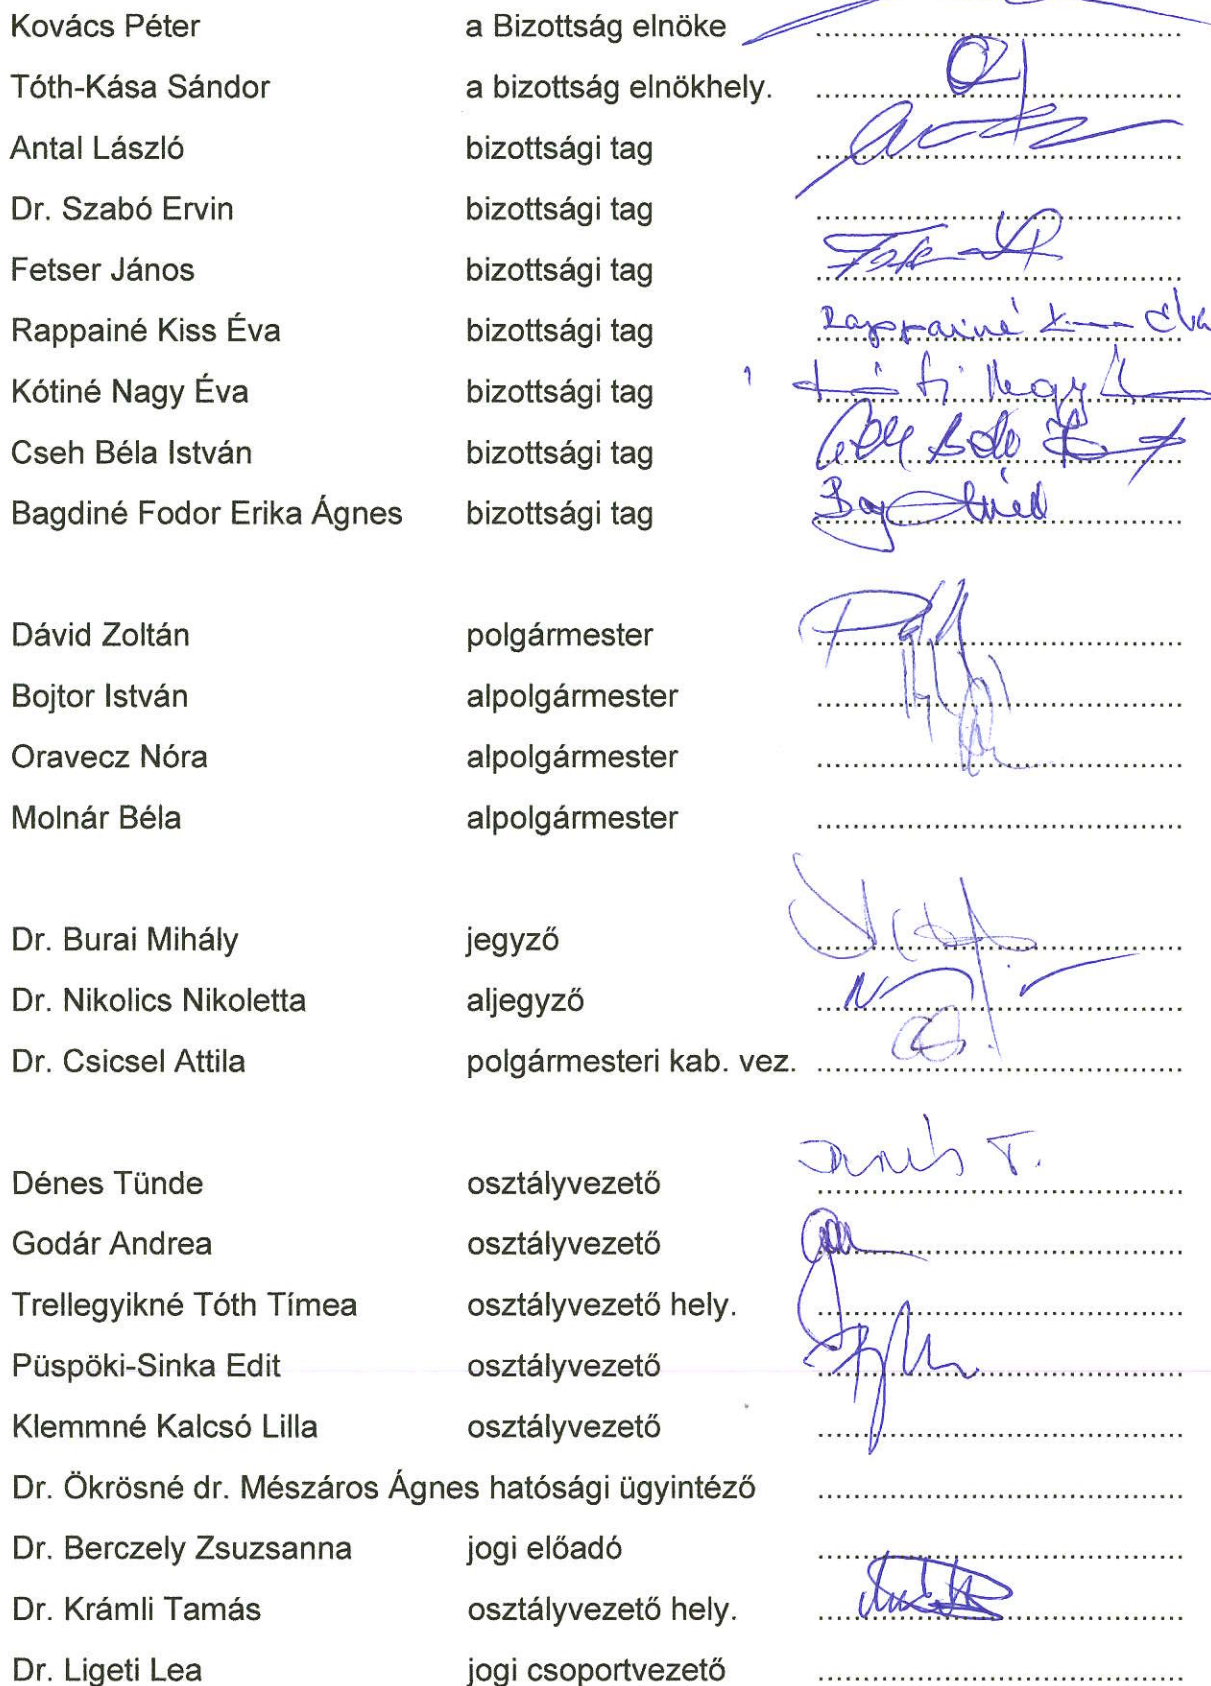 Kovács Péter a Bizottság elnöke ........................................
Tóth-Kása Sándor a bizottság elnökhely. ........................................
Antal László bizottsági tag ........................................
Dr. Szabó Ervin bizottsági tag ........................................
Fetser János bizottsági tag ........................................
Rappainé Kiss Éva bizottsági tag Rappainé Éva
Kótiné Nagy Éva bizottsági tag Nagy
Cseh Béla István bizottsági tag ........................................
Bagdiné Fodor Erika Ágnes bizottsági tag ........................................
Dávid Zoltán polgármester ........................................
Bojtor István alpolgármester ........................................
Oravecz Nóra alpolgármester ........................................
Molnár Béla alpolgármester ........................................
Dr. Burai Mihály jegyző ........................................
Dr. Nikolics Nikoletta aljegyző ........................................
Dr. Csicsel Attila polgármesteri kab. vez. ........................................
Dénes Tünde osztályvezető Dénes T.
Godár Andrea osztályvezető ........................................
Trellegyikné Tóth Tímea osztályvezető hely. ........................................
Püspöki-Sinka Edit osztályvezető ........................................
Klemmné Kalcsó Lilla osztályvezető ........................................
Dr. Ökrösné dr. Mészáros Ágnes hatósági ügyintéző ........................................
Dr. Berczely Zsuzsanna jogi előadó ........................................
Dr. Krámli Tamás osztályvezető hely. ........................................
Dr. Ligeti Lea jogi csoportvezető ........................................